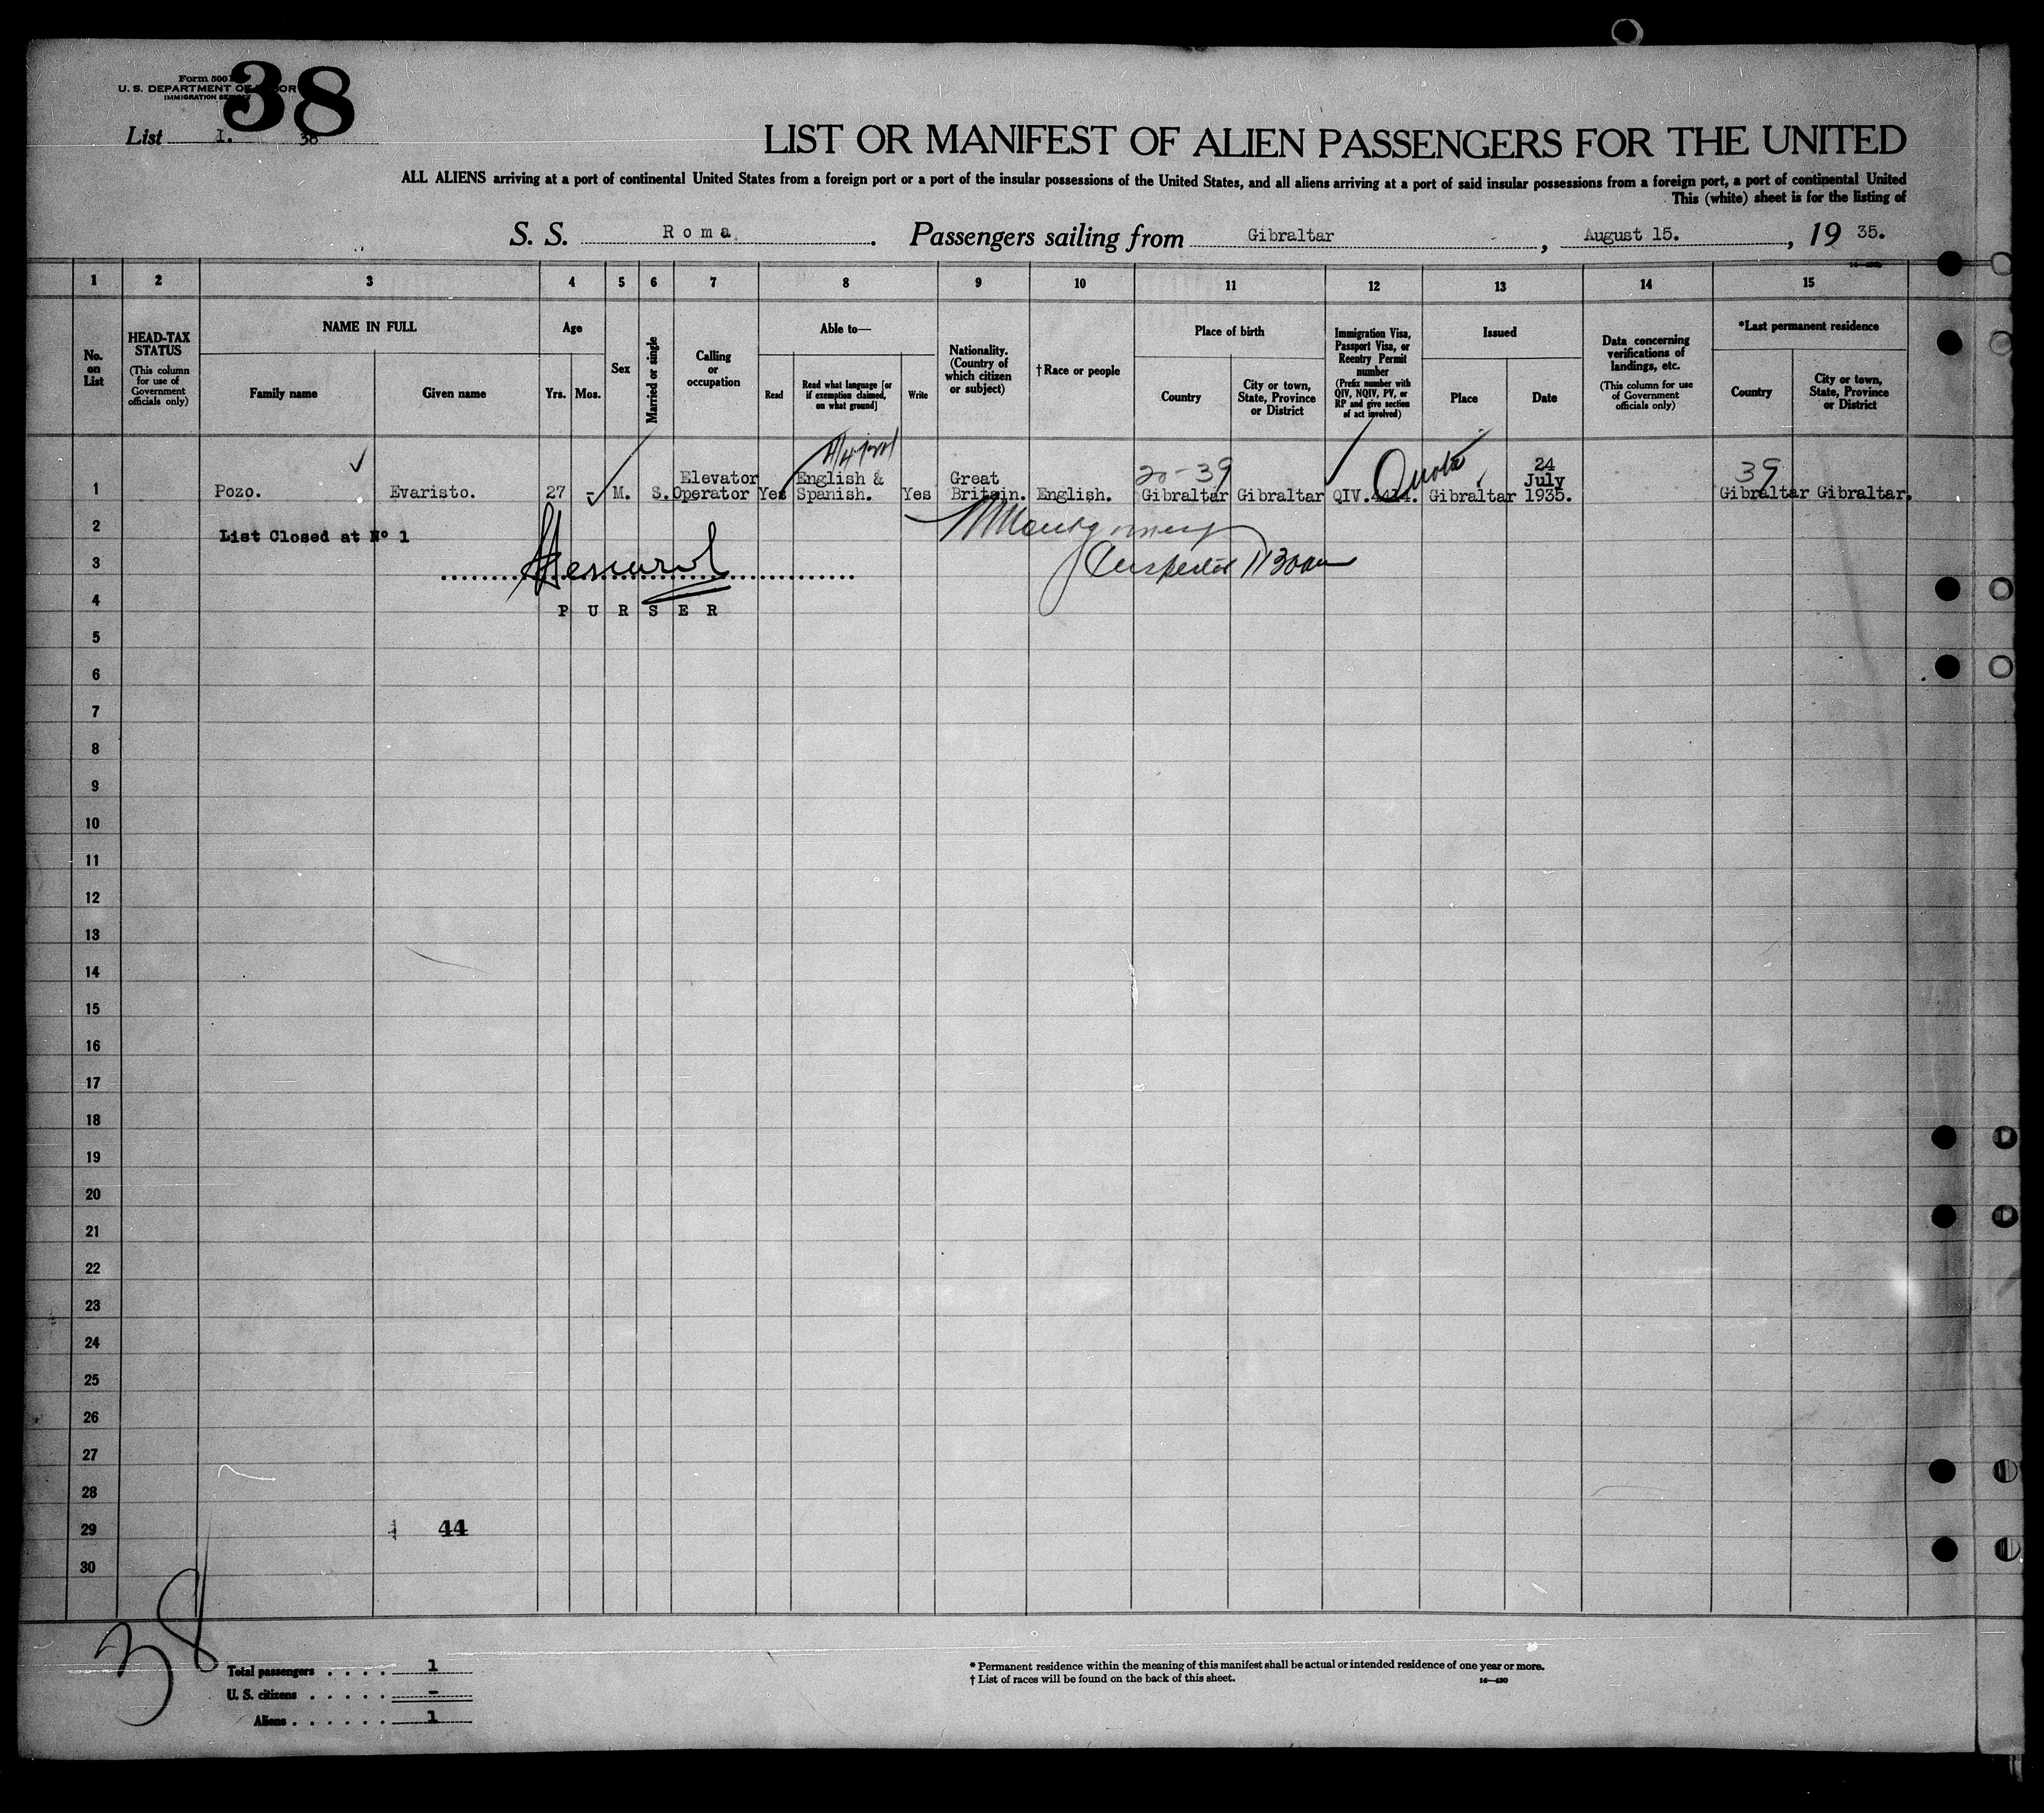 Form 500
U. S. DEPARTMENT OF LABOR
IMMIGRATION SERVICE
38
List 1. 38
LIST OR MANIFEST OF ALIEN PASSENGERS FOR THE UNITED
ALL ALIENS arriving at a port of continental United States from a foreign port or a port of the insular possessions of the United States, and all aliens arriving at a port of said insular possessions from a foreign port, a port of continental United
This (white) sheet is for the listing of
S. S. Roma. Passengers sailing from Gibraltar, August 15., 19 35.
1 2 3 4 5 6 7 8 9 10 11 12 13 14 15
No. on List
HEAD-TAX STATUS
(This column for use of Government officials only)
NAME IN FULL
Family name
Given name
Age
Yrs. Mos.
Sex
Married or single
Calling or occupation
Able to—
Read
Read what language [or if exemption claimed, on what ground]
Write
Nationality. (Country of which citizen or subject)
†Race or people
Place of birth
Country
City or town, State, Province or District
Immigration Visa, Passport Visa, or Reentry Permit number
(Prefix number with QIV, NQIV, PV, or RP and give section of act involved)
Issued
Place
Date
Data concerning verifications of landings, etc.
(This column for use of Government officials only)
*Last permanent residence
Country
City or town, State, Province or District
1 Pozo. Evaristo. 27 - M. S. Elevator Operator Yes English & Spanish. Yes Great Britain. English. 20-39 Gibraltar Gibraltar QIV. Quota Gibraltar 24 July 1935. 39 Gibraltar Gibraltar.
2
List Closed at Nº 1
Montgomery
3
Inspector 1130am
4
PURSER
5
6
7
8
9
10
11
12
13
14
15
16
17
18
19
20
21
22
23
24
25
26
27
28
29 44
30
38
Total passengers . . . . 1
U. S. citizens . . . . . -
Aliens . . . . . . 1
* Permanent residence within the meaning of this manifest shall be actual or intended residence of one year or more.
† List of races will be found on the back of this sheet.